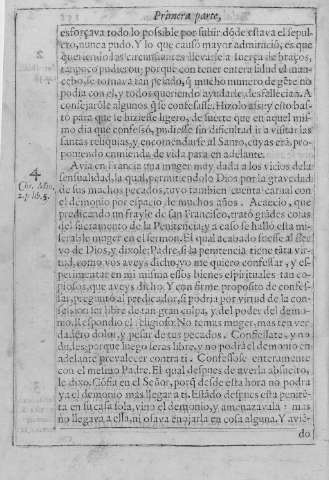 Primera parte,
esforçava todo lo possible por subir dõde estava el sepul-
cro, nunca pudo. Y lo que causò mayor admiraciõ, es que
queriendo las circunstantes llevarle a fuerça de braços,
tanpoco pudieron; porque con tener entera salud el man-
cebo, se tornava tan pesado, q̃ mucho numero de gẽte no
podia con el, y todos queriendo ayudarle desfallecian. A-
consejarõle algunos q̃ se confessasse. Hizolo assi y esto bas-
tò para que le hiziesse ligero, de suerte que en aquel mis-
mo dia que confessò, pudiesse sin dificultad ir a visitar las
santas reliquias, y encomendarse al Santo, cuyas erã, pro-
poniendo enmienda de vida para en adelante.
4
Avia en Francia una muger muy dada a los vicios de la
sensualidad, la qual, permitiendolo Dios por la gravedad
de sus muchos pecados, tuvo tambien cuenta carnal con
el demonio por espacio de muchos años. Acaecio, que
predicando un frayle de san Francisco, tratò grãdes cosas
del sacramento de la Penitencia, y a caso se hallò esta mi-
serable muger en el sermon. El qual acabado fuesse al sier
vo de Dios, y dixole: Padre, si la penitencia tiene tãta vir-
tud, como vos aveys dicho, yo me quiero confessar, y es-
perimentar en mi misma essos bienes espirituales tan co-
piosos, que aveys dicho. Y con firme proposito de confes-
sar, preguntò al predicador, si podria por virtud de la con-
fession ser libre de tan gran culpa, y del poder del demo-
nio. Respondio el religioso: No temas muger, mas ten ver
dadero dolor, y pesar de tus pecados. Confiessate, y no
dudes, porque luego seras libre, y no podrà el demonio en
adelante prevalecer contra ti. Confessose enteramente
con el mesmo Padre. El qual despues de averla absuelto,
le dixo. Cõfia en el Señor, porq̃ desde esta hora no podrà
ya el demonio mas llegar a ti. Estãdo despues esta penitẽ-
ta en su casa sola, vino el demonio, y amenazavala: mas
no llegava a ella, ni osava enojarla en cosa alguna. Y aviẽ-
do